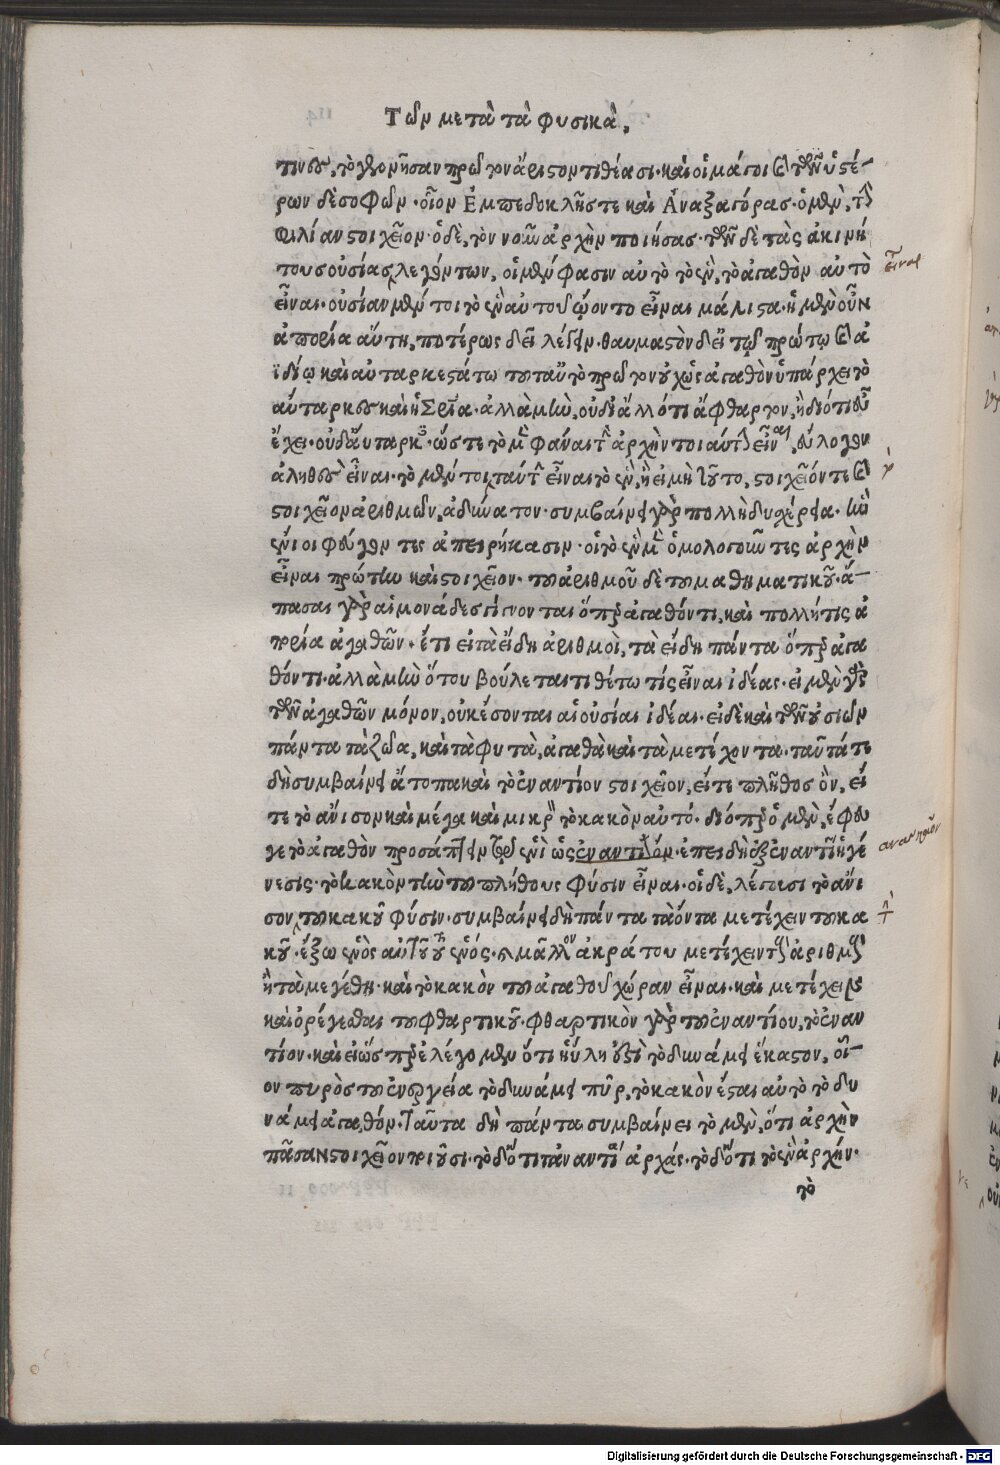 Τῶν μετὰ τὰ φυσικὰ,
τινὲς, τὸ γεννῆσαν πρῶτον ἄριστον τιθέασι. καὶ οἱ μάγοι καὶ τῶν ὑστέ-
ρων δὲ σοφῶν. οἷον Ἐμπεδοκλῆς τε καὶ Ἀναξαγόρας. ὁ μὲν, τὴν
φιλίαν στοιχεῖον. ὁ δὲ, τὸν νοῦν ἀρχὴν ποιήσας. τῶν δὲ τὰς ἀκινή
τους οὐσίας λεγόντων, οἱ μέν φασιν αὐτὸ τὸ ἓν, τὸ ἀγαθὸν αὐτὸ
εἶναι. οὐσίαν μέν τοι τὸ ἓν αὐτοῦ ᾤοντο εἶναι μάλιστα. ἡ μὲν οὖν
ἀπορία αὕτη, ποτέρως δεῖ λέγειν. θαυμαστὸν δ' εἴ τῳ πρώτῳ καὶ ἀ
ϊδίῳ καὶ αὐταρκεστάτῳ τοῦτ' αὐτὸ πρῶτον οὐχ ὡς ἀγαθὸν ὑπάρχει τὸ
αὔταρκες καὶ ἡ σωτηρία. ἀλλὰ μὴν, οὐ δι' ἄλλό τι ἄφθαρτον, ἢ διότι εὖ
ἔχει. οὐδ' αὔταρκες. ὥστε τὸ μὲν φάναι τὴν ἀρχὴν τοιαύτην εἶναι, εὔλογον
ἀληθὲς εἶναι. τὸ μέν τοι ταύτην εἶναι τὸ ἓν, ἢ εἰ μὴ τοῦτο, στοιχεῖόν τε καὶ
στοιχεῖον ἀριθμῶν, ἀδύνατον. συμβαίνει γὰρ πολλὴ δυσχέρεια. ἣν
ἔνιοι φεύγοντες ἀπειρήκασιν. οἱ τὸ ἓν μὲν ὁμολογοῦντες ἀρχὴν
εἶναι πρώτην καὶ στοιχεῖον. τοῦ ἀριθμοῦ δὲ τοῦ μαθηματικοῦ. ἅ-
πασαι γὰρ αἱ μονάδες γίγνονται ὅπερ ἀγαθόν τι, καὶ πολλή τις ἀ
πορία ἀγαθῶν. ἔτι εἰ τὰ εἴδη ἀριθμοὶ, τὰ εἴδη πάντα ὅπερ ἀγα
θόν τι. ἀλλὰ μὴν ὅτου βούλεται τιθέτω τίς εἶναι ἰδέας. εἰ μὲν γὰρ
τῶν ἀγαθῶν μόνον, οὐκ ἔσονται αἱ οὐσίαι ἰδέαι. εἰ δὲ καὶ τῶν οὐσιῶν
πάντα τὰ ζῶα, καὶ τὰ φυτὰ, ἀγαθὰ καὶ τὰ μετέχοντα. ταῦτά τε
δὴ συμβαίνει ἄτοπα καὶ τὸ ἐναντίον στοιχεῖον, εἴτε πλῆθος ὂν, εἴ
τε τὸ ἄνισον καὶ μέγα καὶ μικρὸν τὸ κακὸν αὐτό. διόπερ ὁ μὲν, ἔφευ
γε τὸ ἀγαθὸν προσάπτειν τῷ ἑνὶ ὡς ἐναντίον ὄν. ἐπειδὴ ἐξ ἐναντίων ἡ γέ
νεσις. τὸ κακὸν τὴν τοῦ πλήθους φύσιν εἶναι. οἱ δὲ, λέγουσι τὸ ἄνι
σον, τοῦ κακοῦ φύσιν. συμβαίνει δὴ πάντα τὰ ὄντα μετέχειν τοῦ κα
κοῦ. ἔξω ἑνὸς αὐτοῦ τοῦ ἑνός. καὶ μᾶλλον ἀκράτου μετέχειν τοὺς ἀριθμοὺς
ἢ τὰ μεγέθη. καὶ τὸ κακὸν τοῦ ἀγαθοῦ χώραν εἶναι. καὶ μετέχειν
καὶ ὀρέγεσθαι τοῦ φθαρτικοῦ. φθαρτικὸν γὰρ τοῦ ἐναντίου, τὸ ἐναν
τίον. καὶ εἰ ὥσπερ ἐλέγομεν ὅτι ἡ ὕλη ἐστὶ τὸ δυνάμει ἕκαστον, οἷ-
ον πυρὸς τοῦ ἐνεργείᾳ τὸ δυνάμει πῦρ, τὸ κακὸν ἔσται αὐτὸ τὸ δυ
νάμει ἀγαθόν. ταῦτα δὴ πάντα συμβαίνει τὸ μὲν, ὅτι ἀρχὴν
πᾶσαν στοιχεῖον ποιοῦσι. τὸ δ' ὅτι τἀναντία ἀρχάς. τὸ δ' ὅτι τὸ ἓν ἀρχήν.
τὸ
εἶναι
ἀναγκαῖον
Digitalisierung gefördert durch die Deutsche Forschungsgemeinschaft - DFG